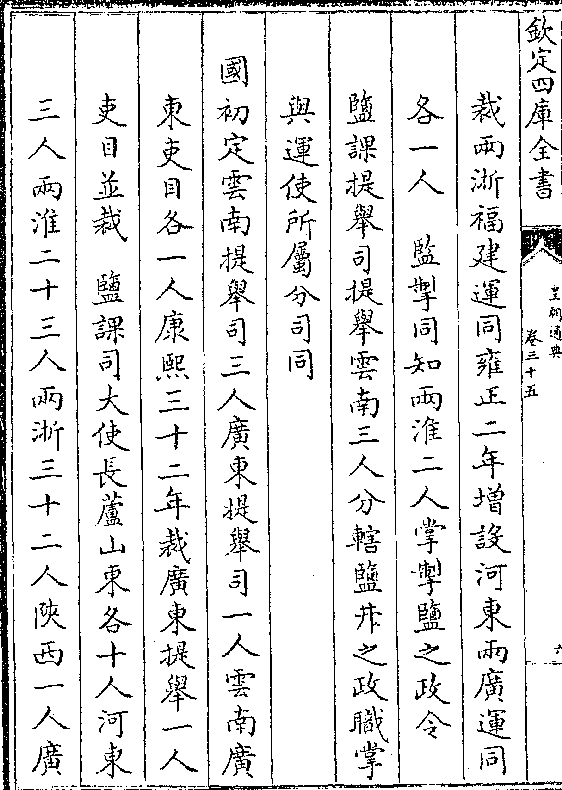 欽定四庫全書
皇朝通典
卷三十五
六
裁兩浙福建運同雍正二年增設河東兩廣運同
各一人　監掣同知兩淮二人掌掣鹽之政令
鹽課提舉司提舉雲南三人分轄鹽井之政職掌
與運使所屬分司同
國初定雲南提舉司三人廣東提舉司一人雲南廣
東吏目各一人康熙三十二年裁廣東提舉一人
吏目並裁　鹽課司大使長蘆山東各十人河東
三人兩淮二十三人兩浙三十二人陝西一人廣